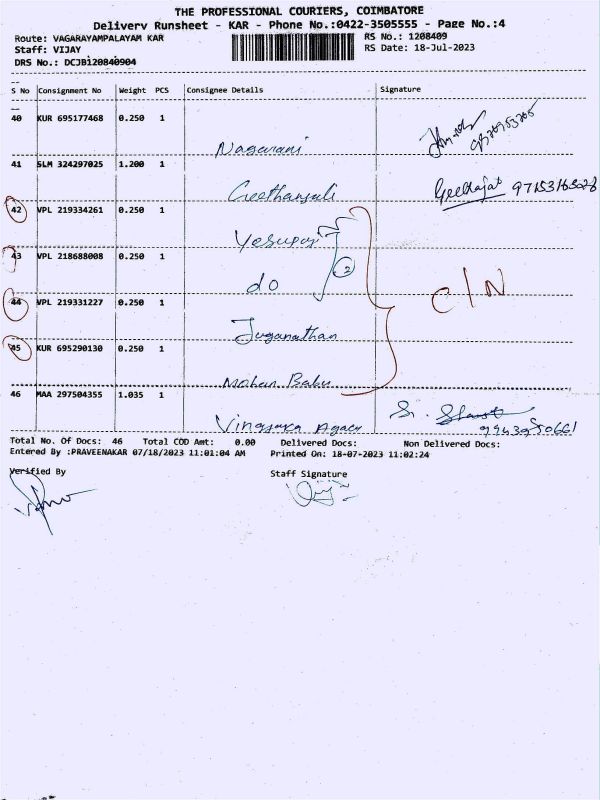 THE PROFESSIONAL COURIERS, COIMBATORE
Delivery Runsheet - KAR - Phone No.:0422-3505555 - Page No.:4
Route: VAGARAYAMPALAYAM KAR RS No.: 1208409
Staff: VIJAY RS Date: 18-Jul-2023
DRS No.: DCJB120840904
S No Consignment No Weight PCS Consignee Details Signature
40 KUR 695177468 0.250 1 Nagarani
41 SLM 324297025 1.200 1 Geethanjali
42 VPL 219334261 0.250 1 Yesuraj
43 VPL 218688008 0.250 1 do 2
44 VPL 219331227 0.250 1 Juganathan C/N
45 KUR 695290130 0.250 1 Mohan Babu
46 MAA 297504355 1.035 1 Vinayaka Agacy
Total No. Of Docs: 46 Total COD Amt: 0.00 Delivered Docs: Non Delivered Docs:
Entered By :PRAVEENAKAR 07/18/2023 11:01:04 AM Printed On: 18-07-2023 11:02:24
Verified By Staff Signature